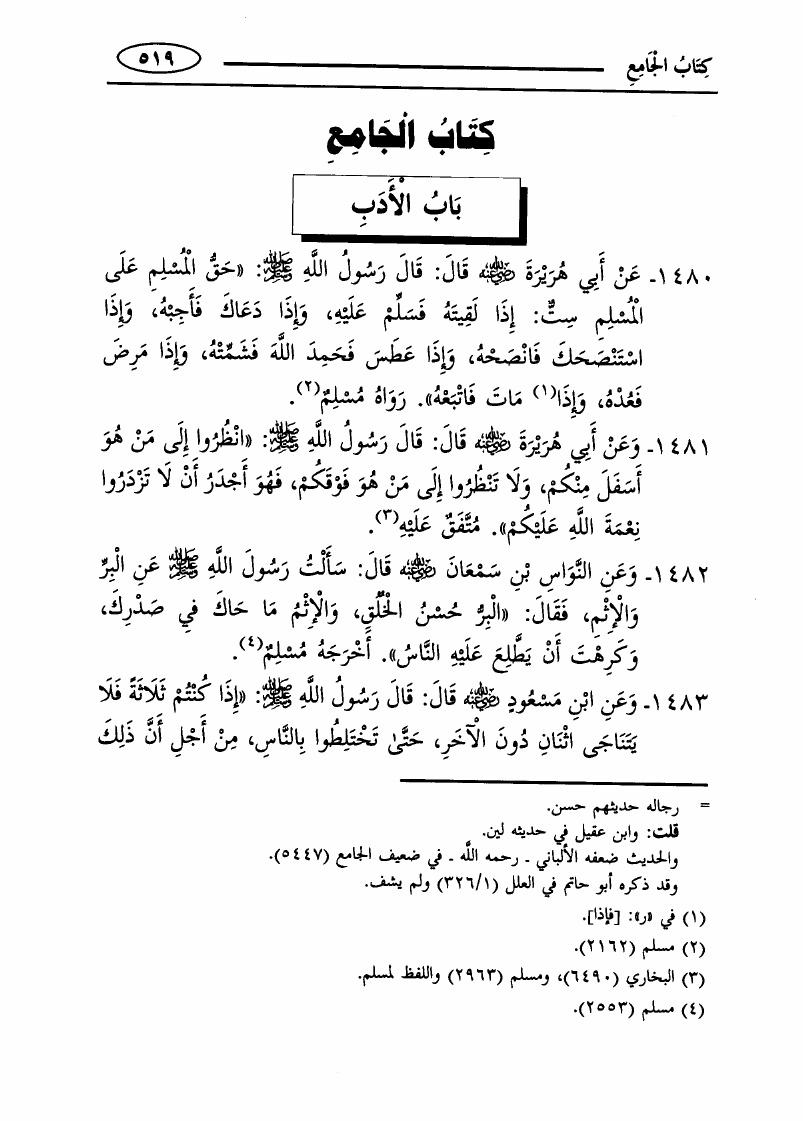 كِتَابُ الْجَامِعِ ٥١٩
كِتَابُ الْجَامِعِ
بَابُ الْأَدَبِ
١٤٨٠ـ عَنْ أَبِي هُرَيْرَةَ رضي الله عنه قَالَ: قَالَ رَسُولُ اللَّهِ ﷺ: «حَقُّ الْمُسْلِمِ عَلَى
الْمُسْلِمِ سِتٌّ: إِذَا لَقِيتَهُ فَسَلِّمْ عَلَيْهِ، وَإِذَا دَعَاكَ فَأَجِبْهُ، وَإِذَا
اسْتَنْصَحَكَ فَانْصَحْهُ، وَإِذَا عَطَسَ فَحَمِدَ اللَّهَ فَشَمِّتْهُ، وَإِذَا مَرِضَ
فَعُدْهُ، وَإِذَا(١) مَاتَ فَاتْبَعْهُ». رَوَاهُ مُسْلِمٌ(٢).
١٤٨١ـ وَعَنْ أَبِي هُرَيْرَةَ رضي الله عنه قَالَ: قَالَ رَسُولُ اللَّهِ ﷺ: «انْظُرُوا إِلَى مَنْ هُوَ
أَسْفَلَ مِنْكُمْ، وَلَا تَنْظُرُوا إِلَى مَنْ هُوَ فَوْقَكُمْ، فَهُوَ أَجْدَرُ أَنْ لَا تَزْدَرُوا
نِعْمَةَ اللَّهِ عَلَيْكُمْ». مُتَّفَقٌ عَلَيْهِ(٣).
١٤٨٢ـ وَعَنِ النَّوَاسِ بْنِ سَمْعَانَ رضي الله عنه قَالَ: سَأَلْتُ رَسُولَ اللَّهِ ﷺ عَنِ الْبِرِّ
وَالْإِثْمِ، فَقَالَ: «الْبِرُّ حُسْنُ الْخُلُقِ، وَالْإِثْمُ مَا حَاكَ فِي صَدْرِكَ،
وَكَرِهْتَ أَنْ يَطَّلِعَ عَلَيْهِ النَّاسُ». أَخْرَجَهُ مُسْلِمٌ(٤).
١٤٨٣ـ وَعَنِ ابْنِ مَسْعُودٍ رضي الله عنه قَالَ: قَالَ رَسُولُ اللَّهِ ﷺ: «إِذَا كُنْتُمْ ثَلَاثَةً فَلَا
يَتَنَاجَى اثْنَانِ دُونَ الْآخَرِ، حَتَّىٰ تَخْتَلِطُوا بِالنَّاسِ، مِنْ أَجْلِ أَنَّ ذَلِكَ
= رجاله حديثهم حسن.
قلت: وابن عقيل في حديثه لين.
والحديث ضعفه الألباني ـ رحمه الله ـ في ضعيف الجامع (٥٤٤٧).
وقد ذكره أبو حاتم في العلل (٣٢٦/١) ولم يشف.
(١) في «ر»: [فإذا].
(٢) مسلم (٢١٦٢).
(٣) البخاري (٦٤٩٠)، ومسلم (٢٩٦٣) واللفظ لمسلم.
(٤) مسلم (٢٥٥٣).